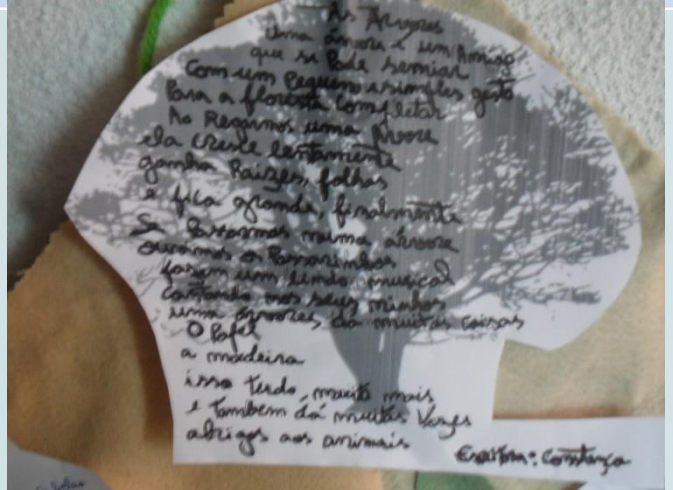 As Árvores
Uma árvore é um Amigo
que se Pode semiar
Com um Pequeno e simples gesto
Para a floresta Completar
Ao Regarmos uma Árvore
ela Cresce lentamente
ganha Raizes, folhas
e fica grande, finalmente
Se Passarmos numa árvore
ouvimos os Passarinhos
fazem um lindo musical
Cantando nos seus ninhos
uma árvores, dá muitas coisas
O Papel
a madeira
isso tudo, muito mais
e tambem dá muitas Vezes
abrigos aos animais
Escritora: Constança